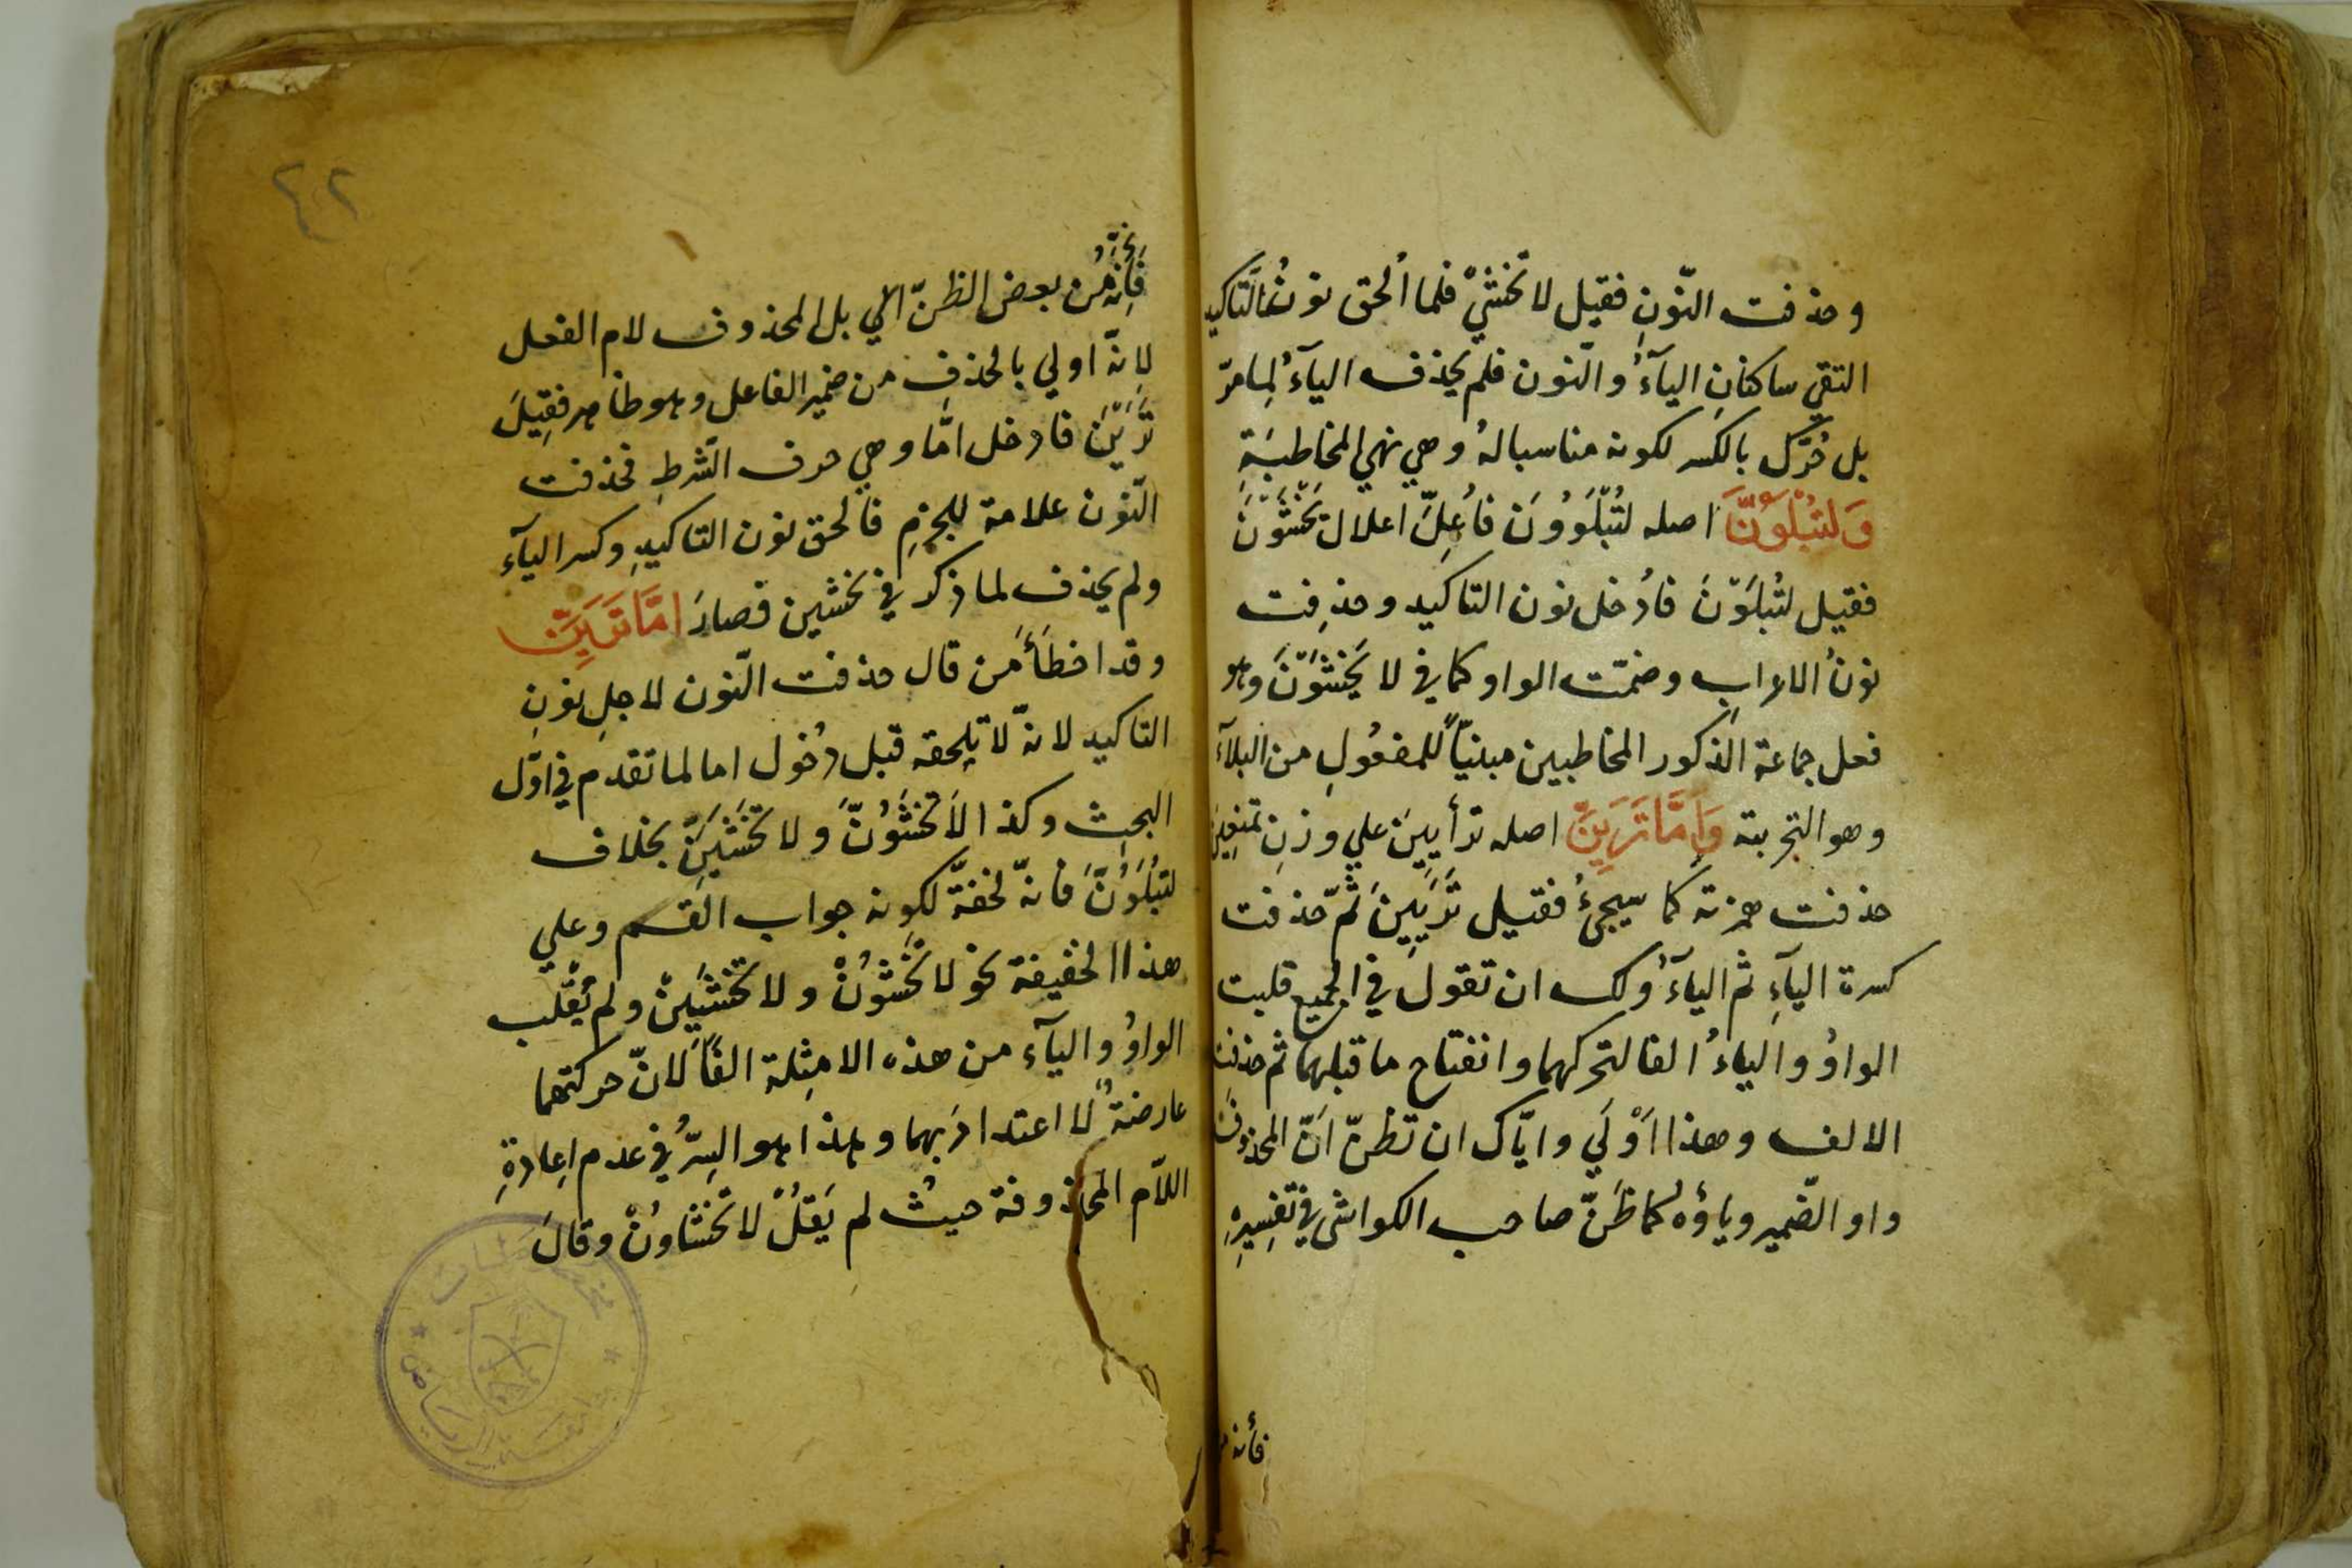 وحذفت النّونِ فقيل لا تخشيْ فلما اُلحق نونُ التّاكيد
التقي ساكنانِ الياءُ والنّون فلم يحذف الياءُ لِمامرّ
بل حُرّك بالكسر لكونه مناسباله وهي نهي المخاطبَةِ
وَلتُبْلَوُنَّ اصله لتُبْلَوُونَ فاُعِلَّ اعلال تَخْشَوْنَ
فقيل لتُبلَوْنَ فاُدخل نون التاكيد وحذِفت
نونُ الاعرابِ وضمّت الواو كما في لا يَخْشَوُنَّ وهو
فعل جماعة الذكور المخاطبين مبنيّاً للمفعُولِ من البلاَء
وهو التجربة وَاِمَّا تَرَيِنَّ اصله ترأيِينَ علي وزنِ تمنعِينَ
حذفت همزته كما سيجئُ فقيل تَرَيِينَ ثمّ حذفت
كسرة الياَءِ ثم الياَءُ ولك ان تقول في الجميع قلبت
الواوُ والياءُ الفا لتحركهما وانفتاح ما قبلهما ثم حذفت
الالف وهذا اَوْلَي واِيّاك ان تظنّ اَنّ المحذوفَ
واو الضّمير وياؤه كما ظَنّ صاحب الكواشى في تفسِيرِهِ
فأنه

٤٢
فَاِنّه مُن بعض الظنّ الي بل المحذوف لام الفعل
لِانّه اولي بالحذفِ من ضمير الفاعل وهو ظاهر فقِيلَ
تَرَيْنَ فادخل امّا وهي حرف الشّرطِ فحذفت
النّون علامة للجزمِ فاُلحق نون التاكيدِ وكسر الياَء
ولم يحذف لما ذكر في تخشين فصارَ اِمَّا تَرَيِنَّ
وقد اخطَأَ مَن قال حذفت النّون لاجلِ نونِ
التاكيد لانهّ لا يلحقه قبل دُخول اما لما تقدم في اوّل
البحث وكذا لاَ تخْشَوُنَّ ولا تخْشَيِنَّ بخلاف
لتبُلَوُنَّ فانهّ لحقهَّ لكونه جواب القسم وعلي
هذا الخفيفة نحو لا تخْشَوُنْ ولا تخْشَيِنْ ولم يُقْلب
الواوُ والياَء من هذه الامثِلة الفاً لانّ حركتهما
عارضةٌ لا اعتدادَ بهما وهذا هو السِرُّ في عدم اِعادةِ
اللاّم المحذوفة حيثُ لم يَقلُ لا تخْشاوُنْ وقالَ